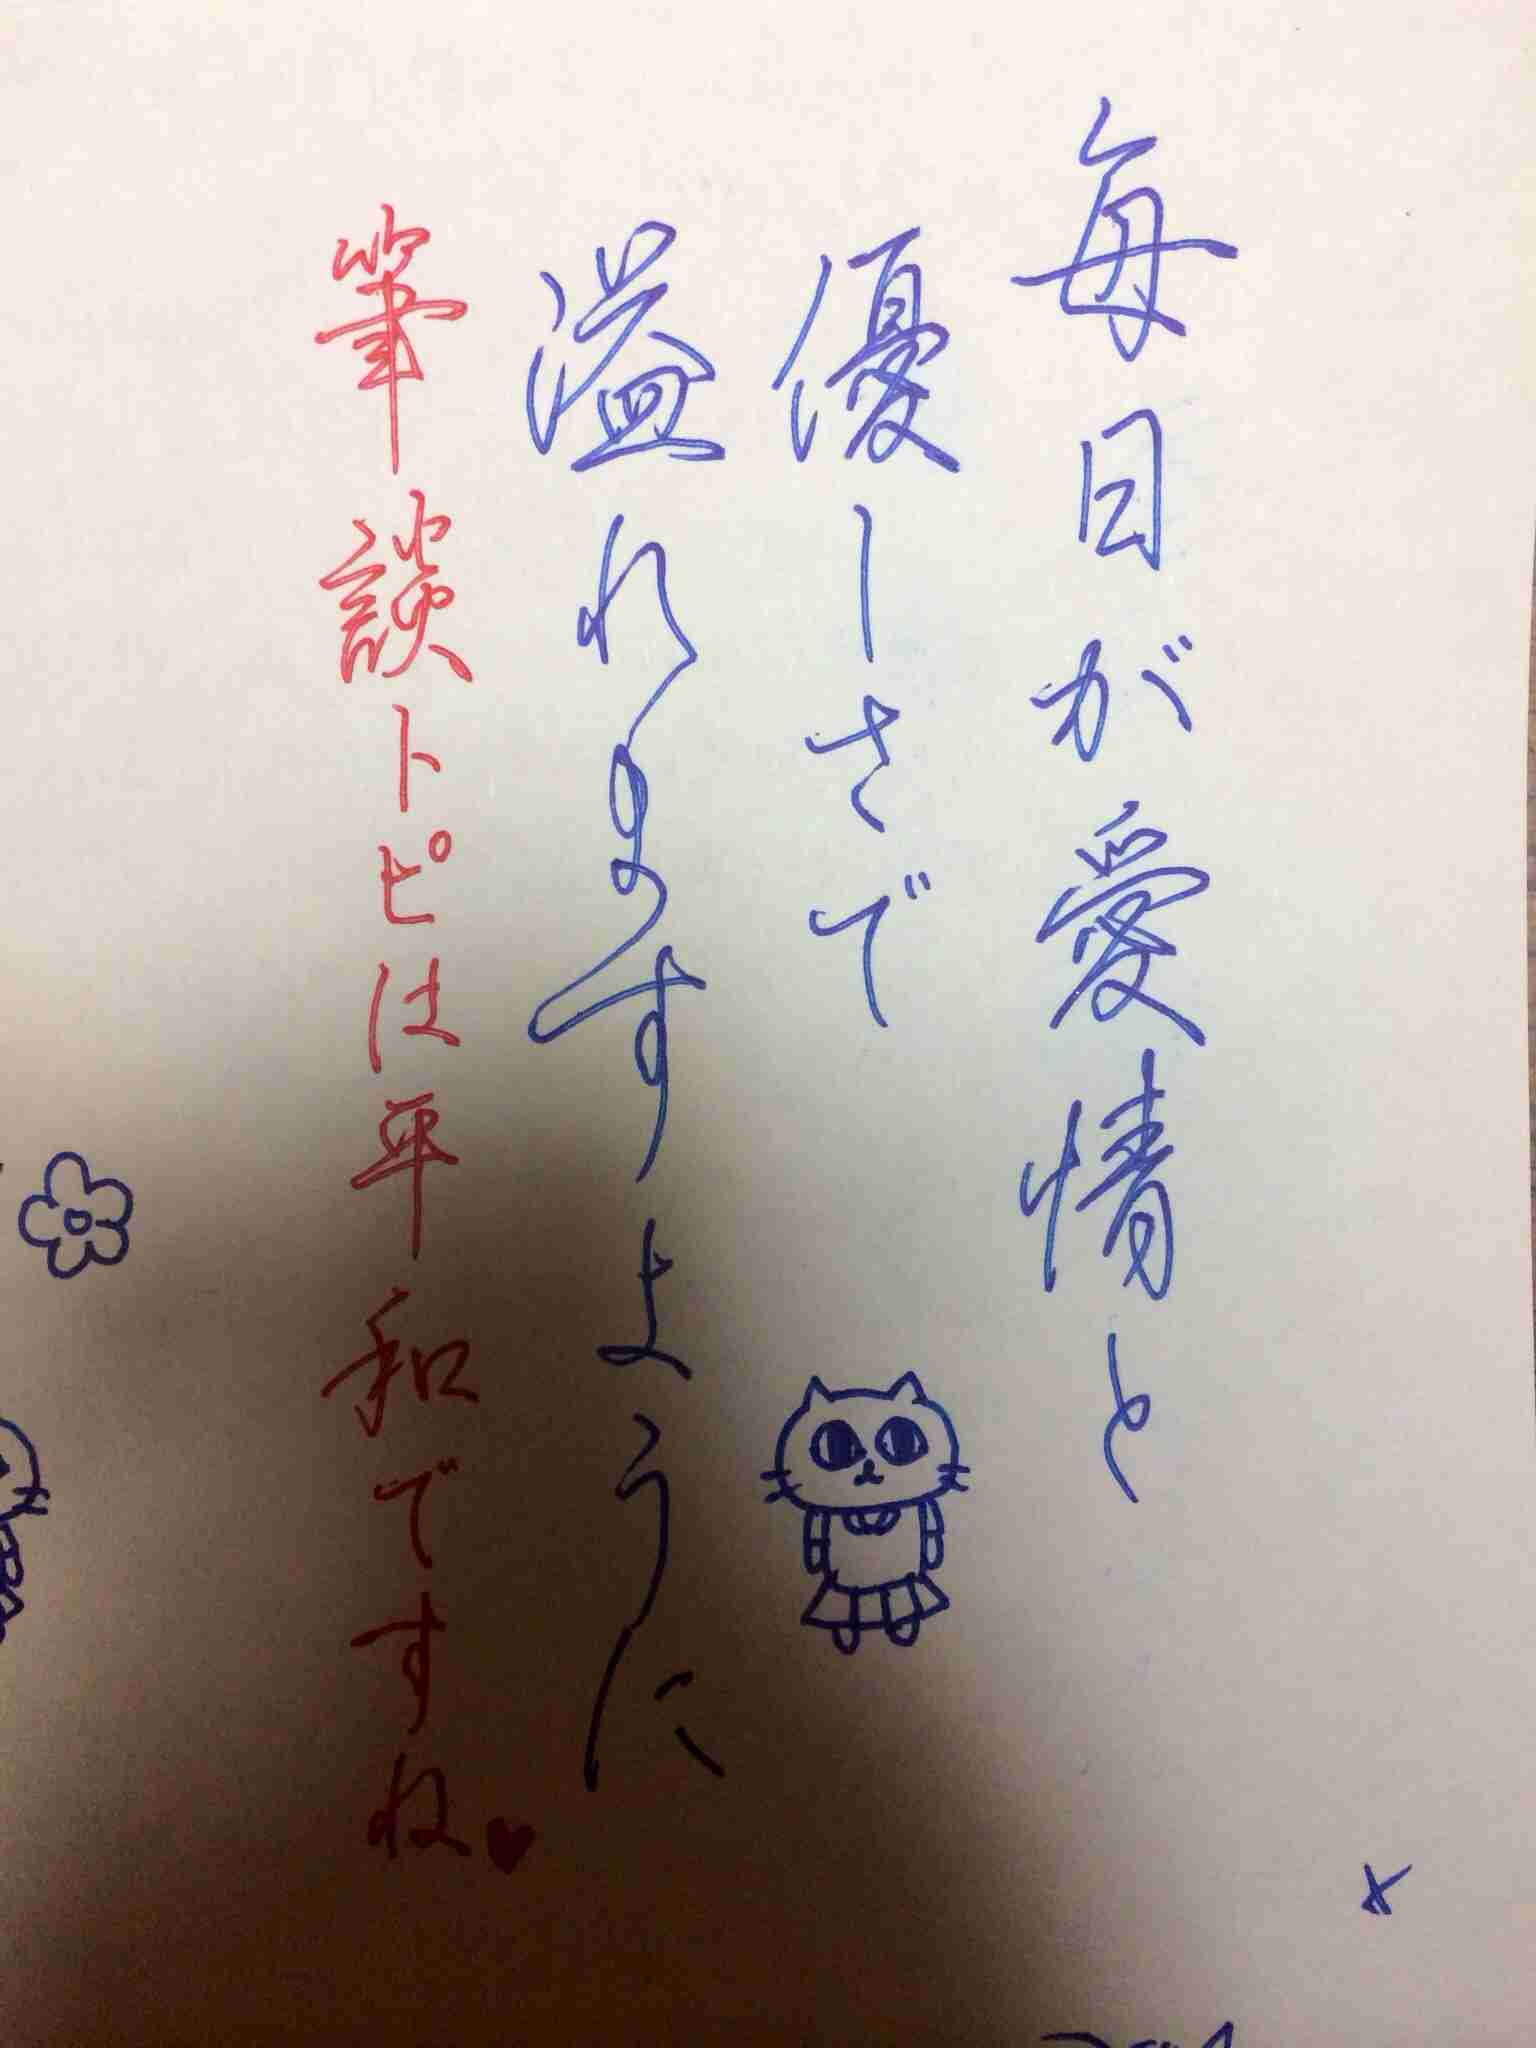 毎日が愛情と
優しさで
溢れますように
筆談トピは平和ですね♥